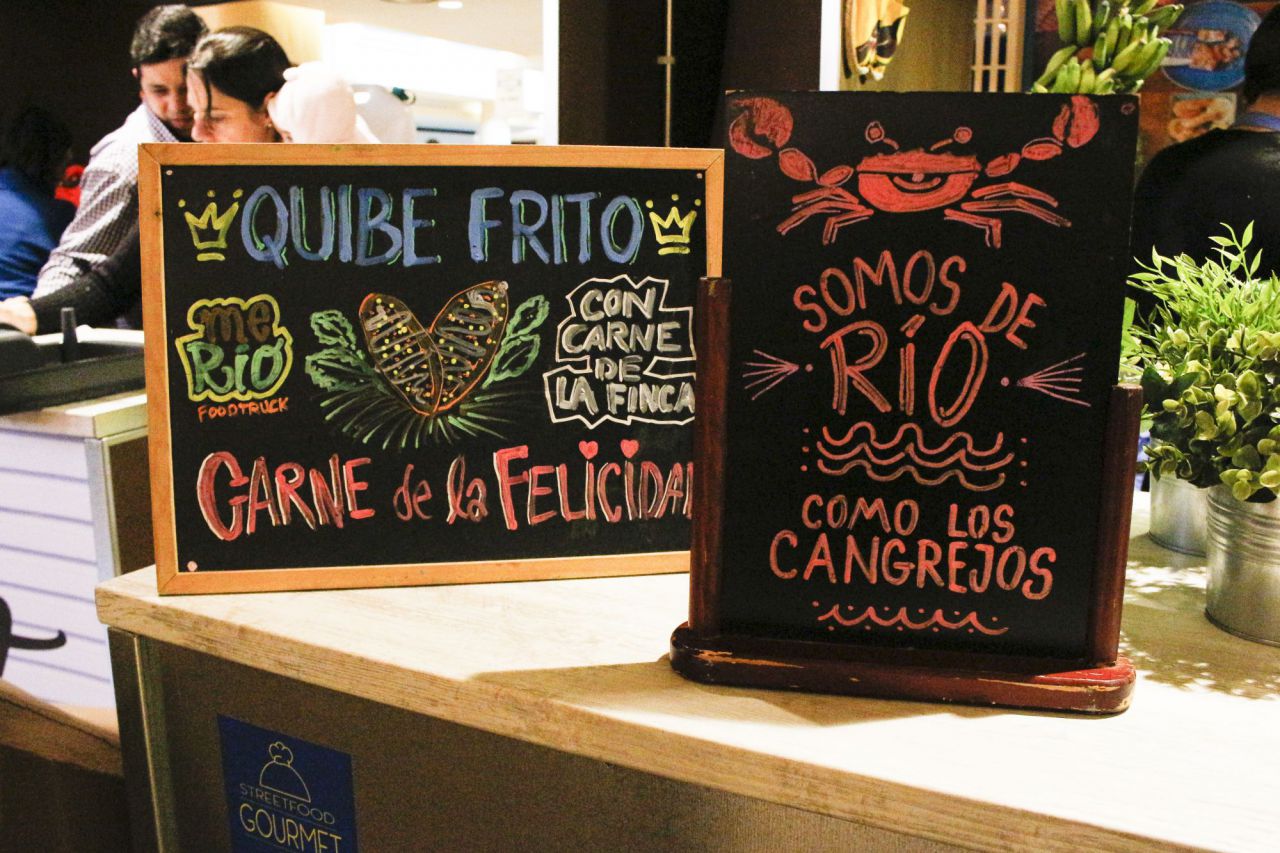 QUIBE FRITO
me
RIO
FOODTRUCK
CON
CARNE
DE
LA FINCA
CARNE de la FELICIDAD
SOMOS DE
RÍO
COMO LOS
CANGREJOS
STREETFOOD
GOURMET